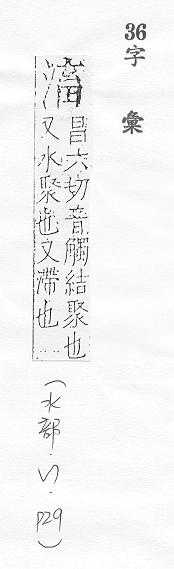 36字彙
滀
昌六切音觸結聚也
又水聚也又滯也……
(水部.  .P29)